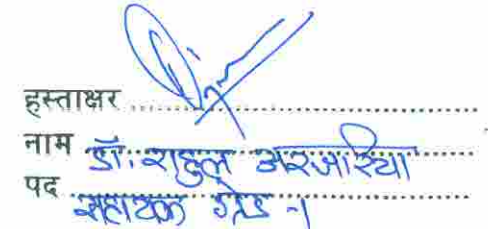 हस्ताक्षर ..............................
नाम डॉ. राहुल अरजरिया
पद सहायक ग्रेड -1